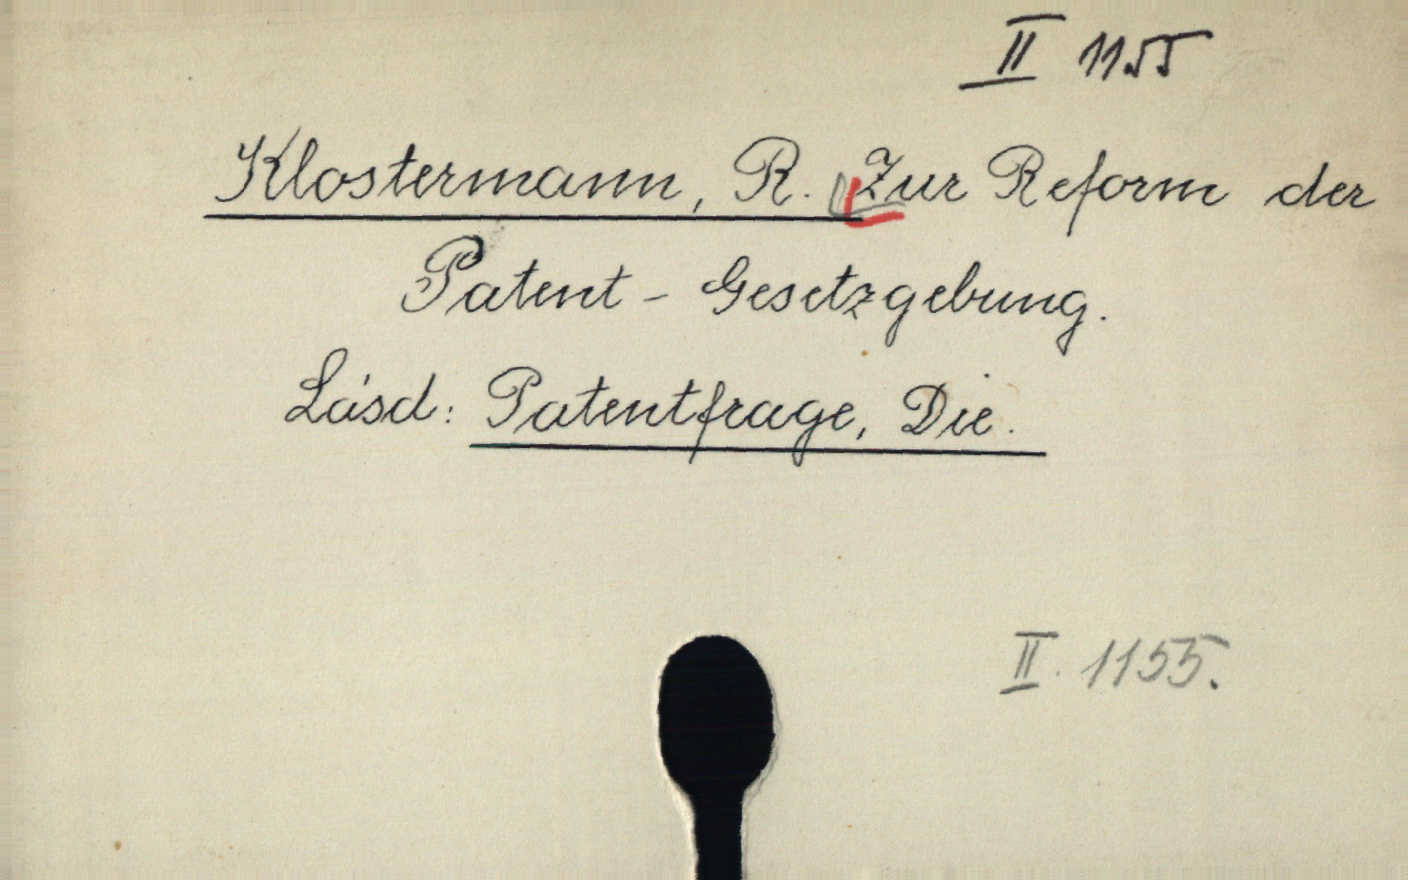 II 1155
Klostermann, R. Zur Reform der
Patent - Gesetzgebung.
Lásd: Patentfrage, Die.
II. 1155.